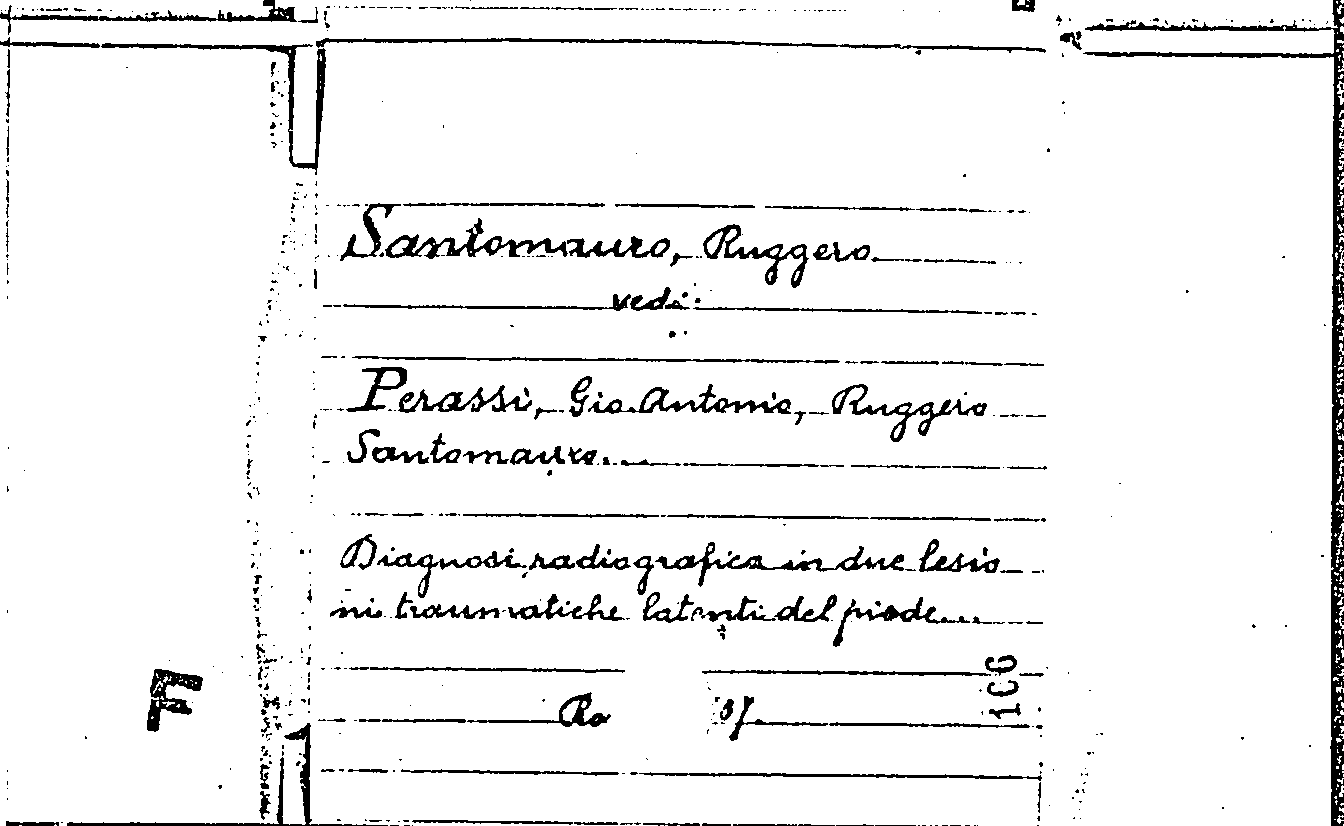 Santomauro, Ruggero
vedi:
Perassi, Gio. Antonio, Ruggero
Santomauro...
Diagnosi radiografica in due lesio
ni traumatiche latenti del piede...
Ro 37
106
F